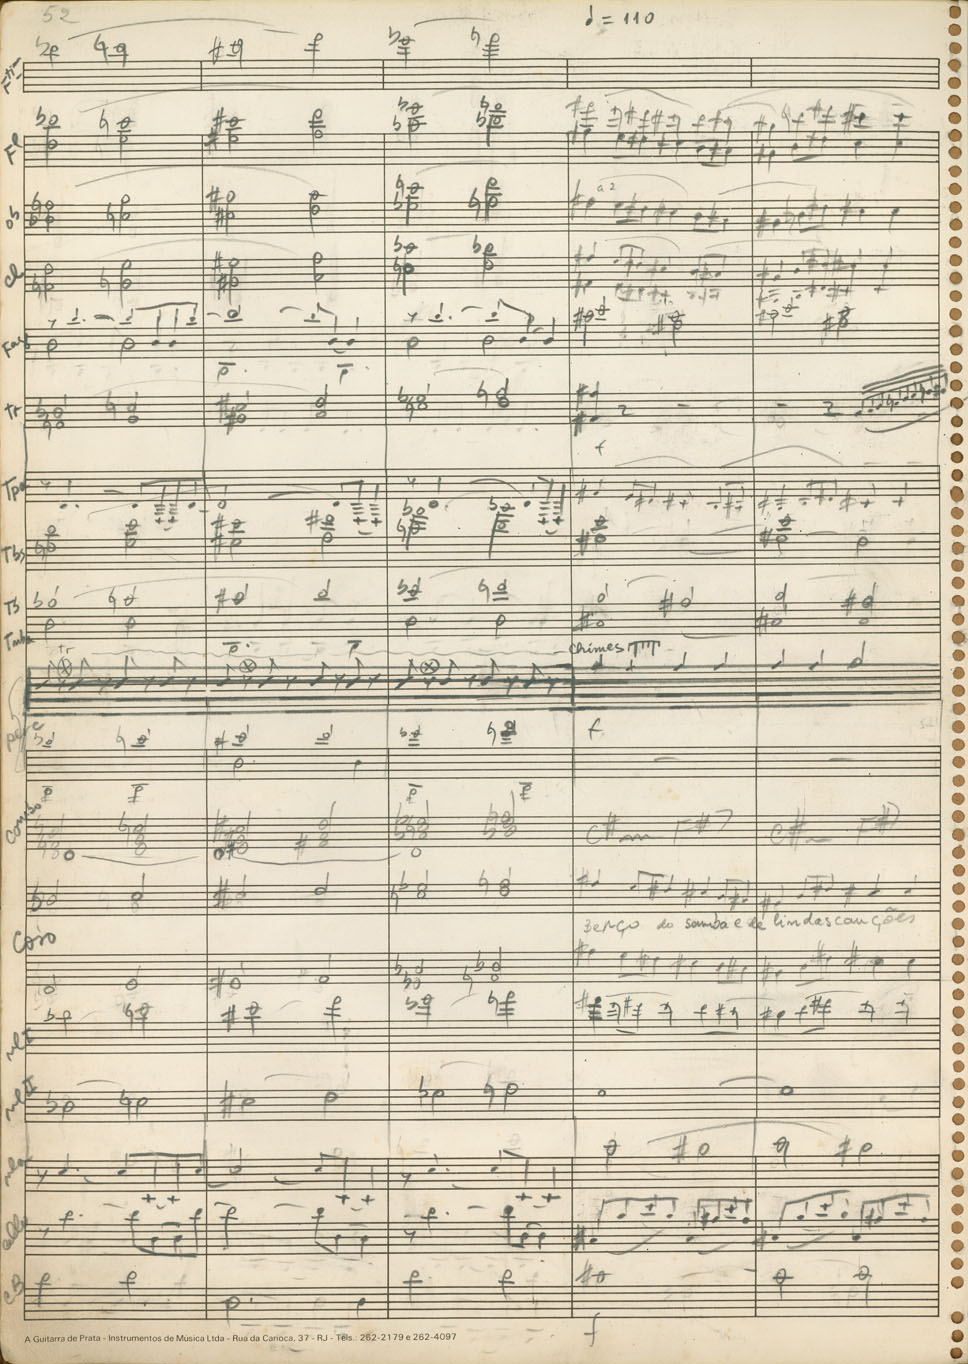 52
♩ = 110
Fl
ob
a 2
cl
Fag
tr
f
Tpa
Tbs
Tb
Tuba
tr
chimes
perc
f
combo
C#m F#7 C#m F#7
Coro
Berço do samba e de lindas canções
vl I
vl II
vla
cello
CB
f
A Guitarra de Prata - Instrumentos de Música Ltda - Rua da Carioca, 37 - RJ - Tels.: 262-2179 e 262-4097